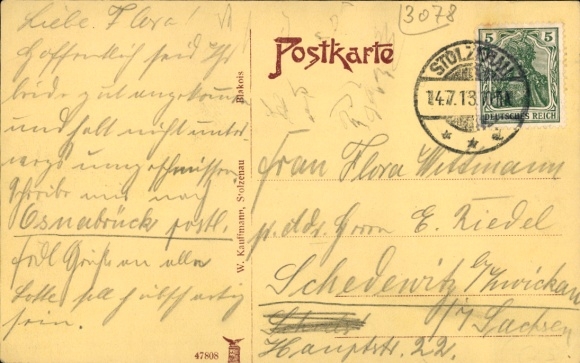 Liebe Flora!
Hoffentlich seid Ihr
beide gut angekommen
und habt nicht unter
wegs umgeschmissen
Schreibe mir nach
Osnabrück postl.
Frdl Grüße an alle
Lotte soll hübsch artig
sein.
47808
W. Kauffmann, Stolzenau
Blakois
Postkarte
3078
5 5
DEUTSCHES REICH
STOLZENAU
14.7.13
Frau Flora Witzmann
p. Adr. Herrn E. Riedel
Schedewitz b/Zwickau
i/ Sachsen
Hauptstr. 22